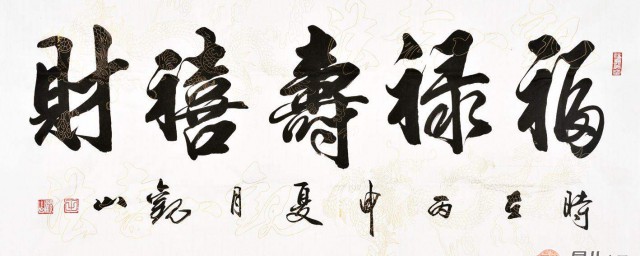 福禄壽禧財
時在丙申夏月觀山